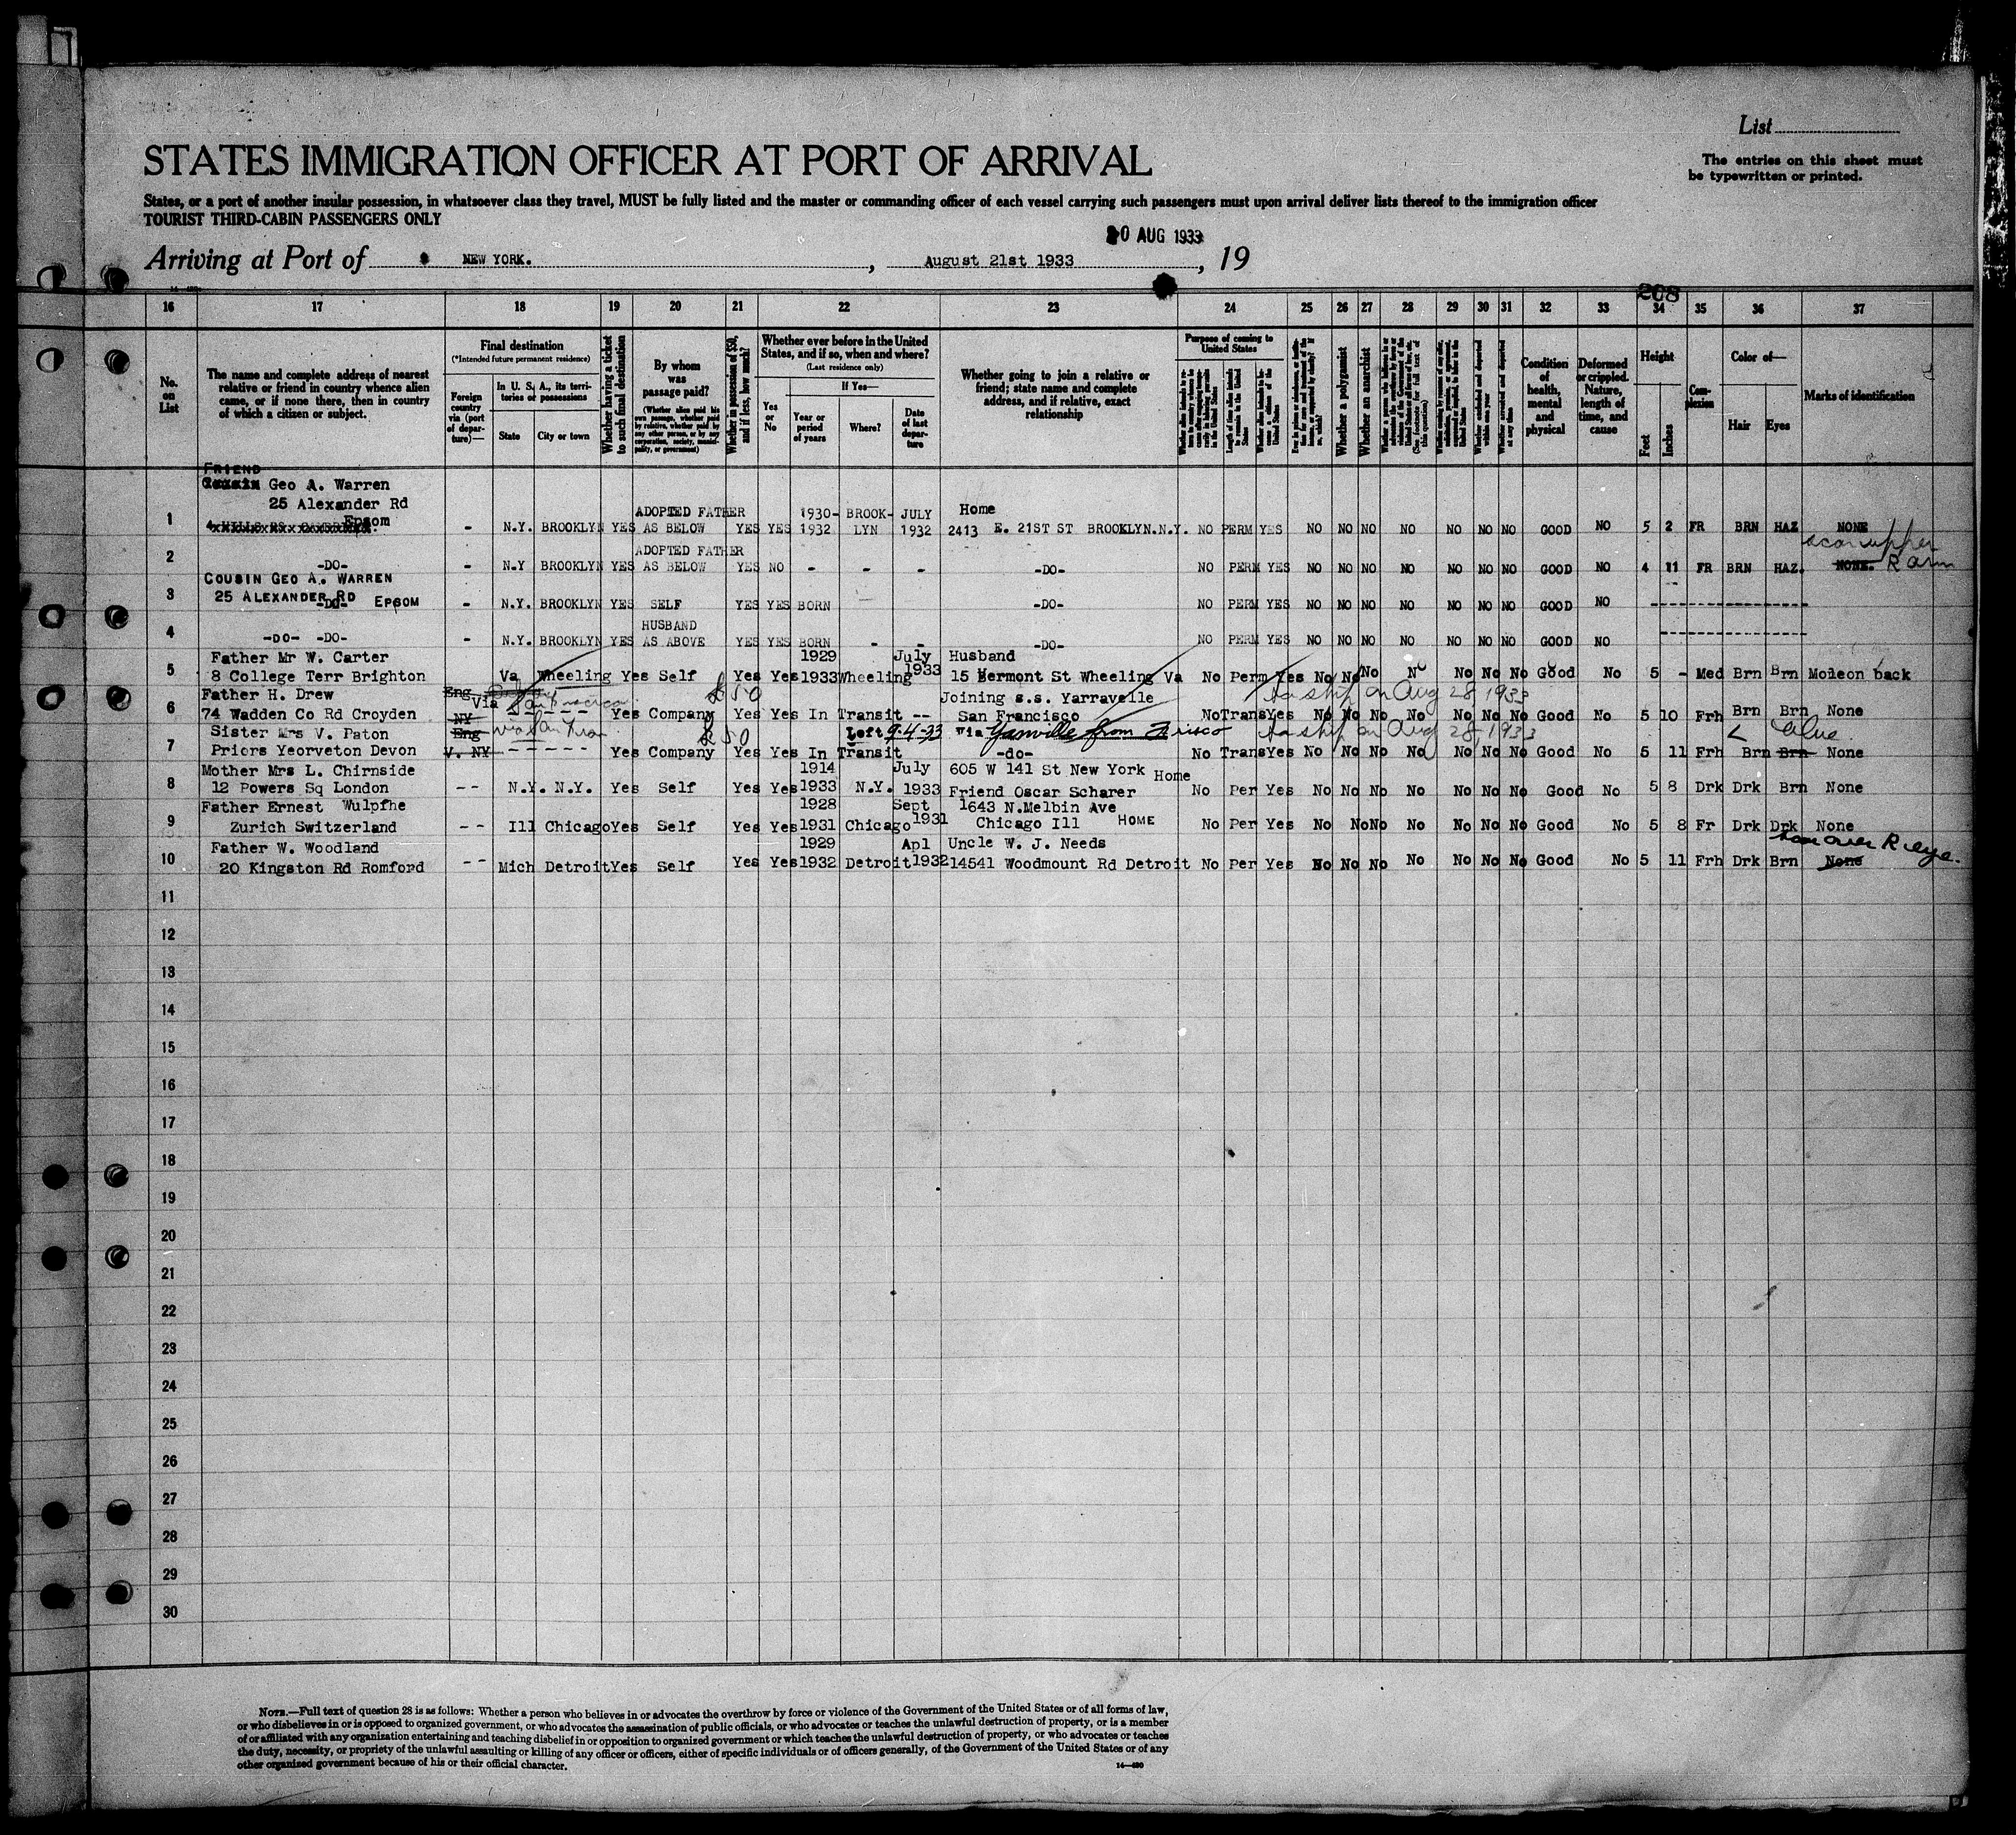 List
The entries on this sheet must
be typewritten or printed.
STATES IMMIGRATION OFFICER AT PORT OF ARRIVAL
States, or a port of another insular possession, in whatsoever class they travel, MUST be fully listed and the master or commanding officer of each vessel carrying such passengers must upon arrival deliver lists thereof to the immigration officer
TOURIST THIRD-CABIN PASSENGERS ONLY
20 AUG 1933
Arriving at Port of NEW YORK. , August 21st 1933 , 19
208
16 17 18 19 20 21 22 23 24 25 26 27 28 29 30 31 32 33 34 35 36 37
No. on List
The name and complete address of nearest
relative or friend in country whence alien
came, or if none there, then in country
of which a citizen or subject.
Final destination
(*Intended future permanent residence)
Foreign country via (port of departure)—
In U. S. A., its territories or possessions
State City or town
Whether having a ticket to such final destination
By whom was passage paid?
(Whether alien paid his own passage, whether paid by relative, whether paid by any other person, or by any corporation, society, municipality, or government)
Whether in possession of $50, and if less, how much?
Whether ever before in the United
States, and if so, when and where?
(Last residence only)
Yes or No
If Yes—
Year or period of years
Where?
Date of last departure
Whether going to join a relative or
friend; state name and complete
address, and if relative, exact
relationship
Purpose of coming to United States
Length of time alien intends to remain in the United States
Whether a polygamist
Whether an anarchist
Condition of health, mental and physical
Deformed or crippled. Nature, length of time, and cause
Height
Feet Inches
Complexion
Color of—
Hair Eyes
Marks of identification
FRIEND
Geo A. Warren
25 Alexander Rd
Epsom
1 - N.Y. BROOKLYN YES ADOPTED FATHER AS BELOW YES YES 1930-1932 BROOKLYN JULY 1932 Home 2413 E. 21ST ST BROOKLYN.N.Y. NO PERM YES NO NO NO NO NO NO NO GOOD NO 5 2 FR BRN HAZ NONE
2 -DO- - N.Y BROOKLYN YES ADOPTED FATHER AS BELOW YES NO - - - -DO- NO PERM YES NO NO NO NO NO NO NO GOOD NO 4 11 FR BRN HAZ. NONE. scar upper R arm
COUSIN GEO A. WARREN
3 25 ALEXANDER RD -DO- EPSOM - N.Y. BROOKLYN YES SELF YES YES BORN — -DO- NO PERM YES NO NO NO NO NO NO NO GOOD NO ---------------
4 -DO- -DO- - N.Y. BROOKLYN YES HUSBAND AS ABOVE YES YES BORN - - -DO- NO PERM YES NO NO NO NO NO NO NO GOOD NO ---------------
Father Mr W. Carter
5 8 College Terr Brighton Va Wheeling Yes Self Yes Yes 1929 1933 Wheeling July 1933 Husband 15 Vermont St Wheeling Va No Perm Yes No No No No No No No Good No 5 - Med Brn Brn Mole on back
Father H. Drew
6 74 Wadden Co Rd Croyden Eng Via NY San Francisco Yes Company $50 Yes Yes In Transit -- Joining s.s. Yarravelle San Francisco No Trans Yes to ship on Aug 28, 1933 No No No No No No No Good No 5 10 Frh Brn Brn None
Sister Mrs V. Paton
7 Priors Yeorveton Devon Eng V. NY via San Fran - - - - - - Yes Company $50 Yes Yes In Transit Left 9-4-33 via Yanville from Frisco -do- No Trans Yes to ship on Aug 28, 1933 No No No No No No No Good No 5 11 Frh Brn Brn Blue None
Mother Mrs L. Chirnside
8 12 Powers Sq London -- N.Y. N.Y. Yes Self Yes Yes 1914 1933 N.Y. July 1933 605 W 141 St New York Home Friend Oscar Scharer No Per Yes No No No No No No No Good No 5 8 Drk Drk Brn None
Father Ernest Wulpfhe
9 Zurich Switzerland -- Ill Chicago Yes Self Yes Yes 1928 1931 Chicago Sept 1931 1643 N.Melbin Ave Chicago Ill HOME No Per Yes No No No No No No No Good No 5 8 Fr Drk Drk None
Father W. Woodland
10 20 Kingston Rd Romford -- Mich Detroit Yes Self Yes Yes 1929 1932 Detroit Apl 1932 Uncle W. J. Needs 14541 Woodmount Rd Detroit No Per Yes No No No No No No No Good No 5 11 Frh Drk Brn None scar over R eye.
11
12
13
14
15
16
17
18
19
20
21
22
23
24
25
26
27
28
29
30
NOTE.—Full text of question 28 is as follows: Whether a person who believes in or advocates the overthrow by force or violence of the Government of the United States or of all forms of law,
or who disbelieves in or is opposed to organized government, or who advocates the assassination of public officials, or who advocates or teaches the unlawful destruction of property, or is a member
of or affiliated with any organization entertaining and teaching disbelief in or opposition to organized government or which teaches the unlawful destruction of property, or who advocates or teaches
the duty, necessity, or propriety of the unlawful assaulting or killing of any officer or officers, either of specific individuals or of officers generally, of the Government of the United States or of any
other organized government because of his or their official character.
14—430